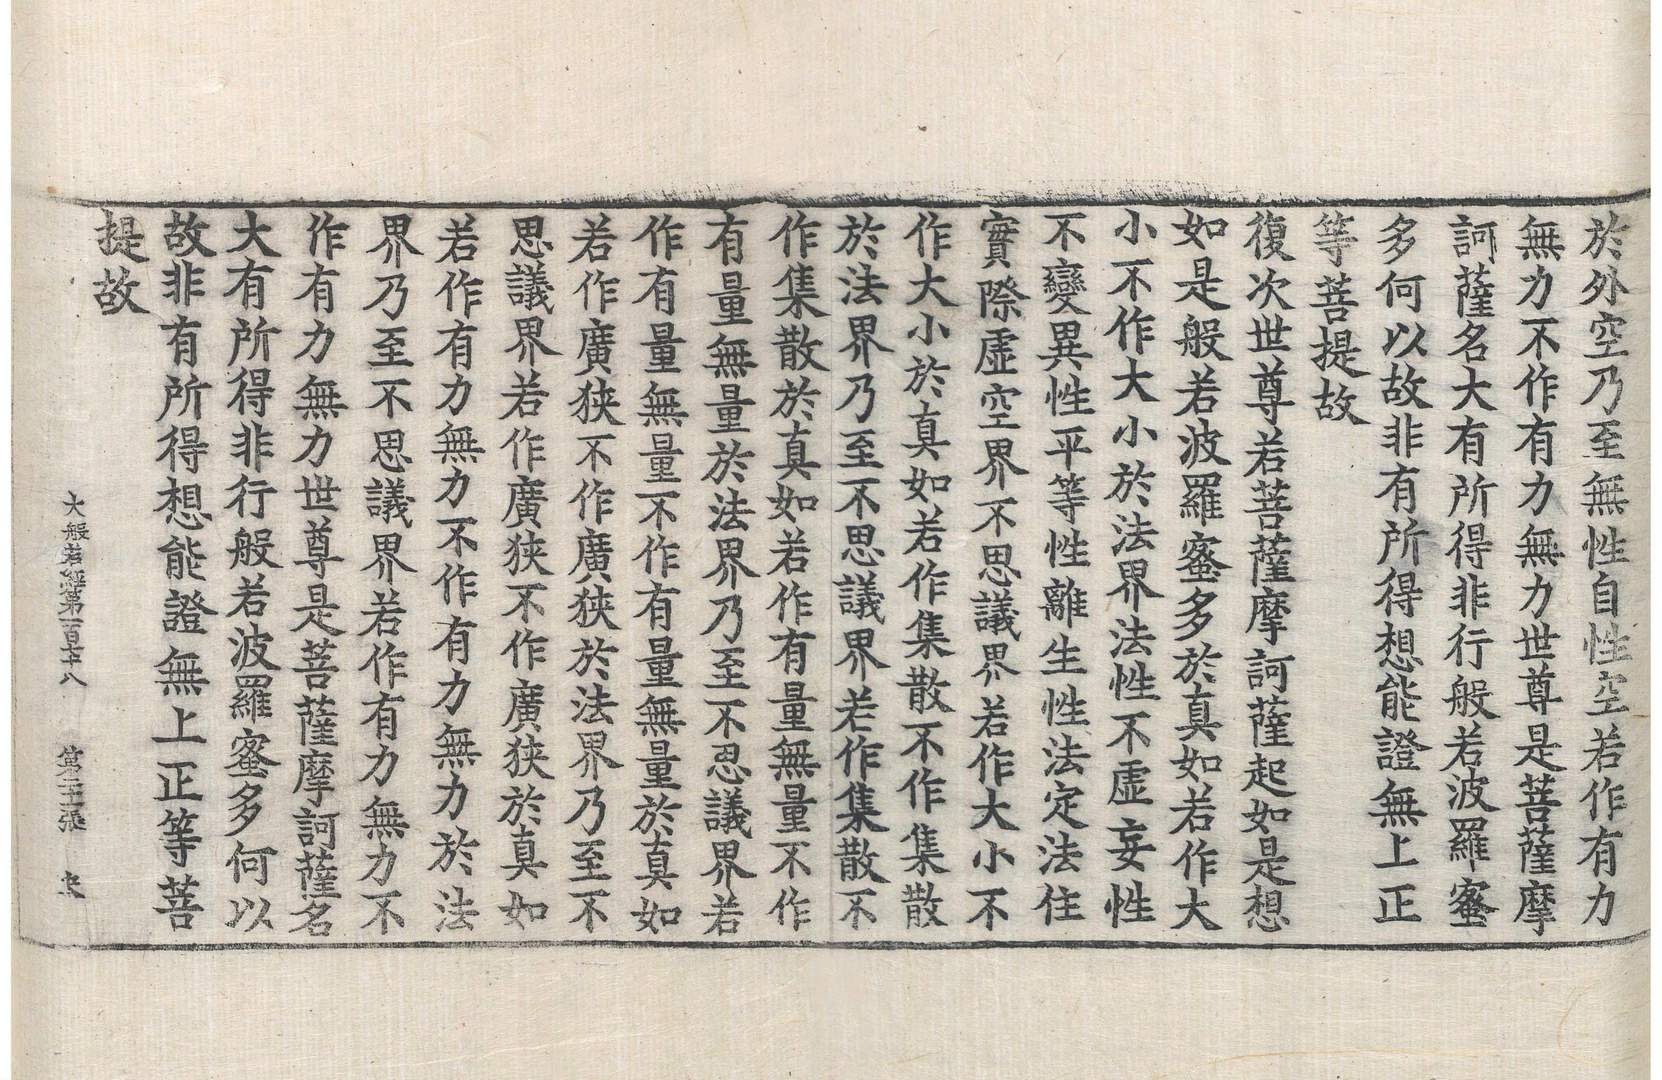 於外空乃至無性自性空若作有力
無力不作有力無力世尊是菩薩摩
訶薩名大有所得非行般若波羅蜜
多何以故非有所得想能證無上正
等菩提故
復次世尊若菩薩摩訶薩起如是想
如是般若波羅蜜多於真如若作大
小不作大小於法界法性不虛妄性
不變異性平等性離生性法定法住
實際虛空界不思議界若作大小不
作大小於真如若作集散不作集散
於法界乃至不思議界若作集散不
作集散於真如若作有量無量不作
有量無量於法界乃至不思議界若
作有量無量不作有量無量於真如
若作廣狹不作廣狹於法界乃至不
思議界若作廣狹不作廣狹於真如
若作有力無力不作有力無力於法
界乃至不思議界若作有力無力不
作有力無力世尊是菩薩摩訶薩名
大有所得非行般若波羅蜜多何以
故非有所得想能證無上正等菩
提故
大般若經第一百七十八 第 張